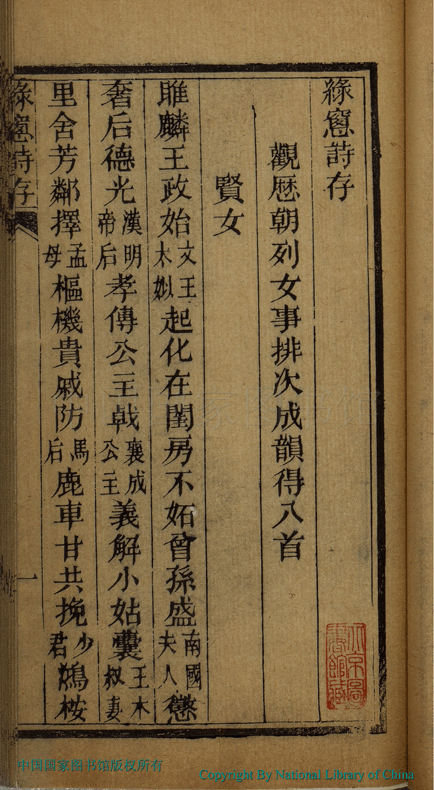 綠窻詩存
觀歷朝列女事排次成韻得八首
賢女
雎麟王政始文王太姒起化在閨房不妬曾孫盛南國夫人懲
奢后德光漢明帝后孝傳公主戟襄成公主義解小姑囊王木叔妻
里舍芳鄰擇孟母樞機貴戚防馬后鹿車甘共挽少君鴆桉
綠窻詩存
一
中国国家图书馆版权所有
Copyright By National Library of China